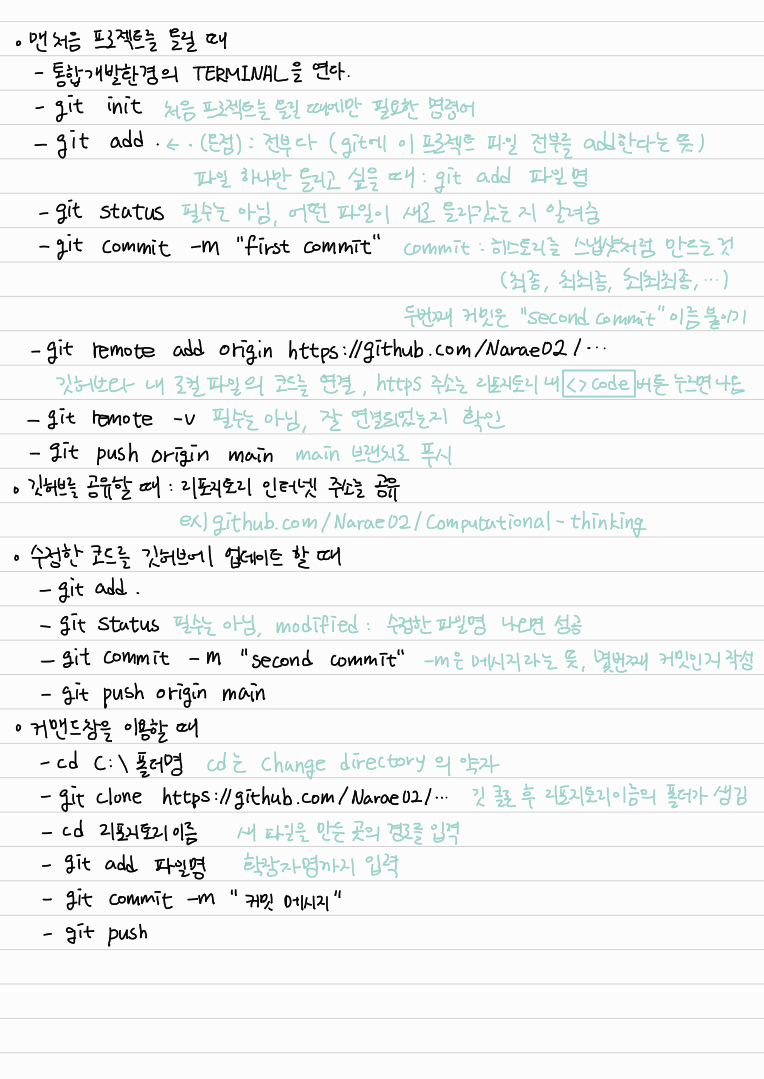 • 맨처음 프로젝트를 올릴 때
- 통합개발환경의 TERMINAL을 연다.
- git init 처음 프로젝트를 올릴 때에만 필요한 명령어
- git add . ← . (온점) : 전부다 (git에 이 프로젝트 파일 전부를 add한다는 뜻)
파일 하나만 올리고 싶을 때 : git add 파일명
- git status 필수는 아님, 어떤 파일이 새로 올라갔는 지 알려줌
- git commit -m "first commit" commit : 히스토리를 스냅샷처럼 만드는것
(최종, 최최종, 최최최종, ...)
두번째 커밋은 "second commit" 이름 붙이기
- git remote add origin https://github.com/Narae02/...
깃허브와 내 로컬파일의 코드를 연결, https 주소는 리포지토리 내 <> code 버튼 누르면 나옴
- git remote -v 필수는 아님, 잘 연결되었는지 확인
- git push origin main main 브랜치로 푸시
• 깃허브를 공유할 때 : 리포지토리 인터넷 주소를 공유
ex) github.com/Narae02/Computational-thinking
• 수정한 코드를 깃허브에 업데이트 할 때
- git add .
- git status 필수는 아님, modified : 수정한 파일명 나오면 성공
- git commit -m "second commit" -m은 메시지라는 뜻, 몇번째 커밋인지 작성
- git push origin main
• 커맨드창을 이용할 때
- cd C:\폴더명 cd는 change directory의 약자
- git clone https://github.com/Narae02/... 깃 클론 후 리포지토리이름의 폴더가 생김
- cd 리포지토리이름 새 파일을 만든 곳의 경로를 입력
- git add 파일명 확장자명까지 입력
- git commit -m "커밋 메시지"
- git push